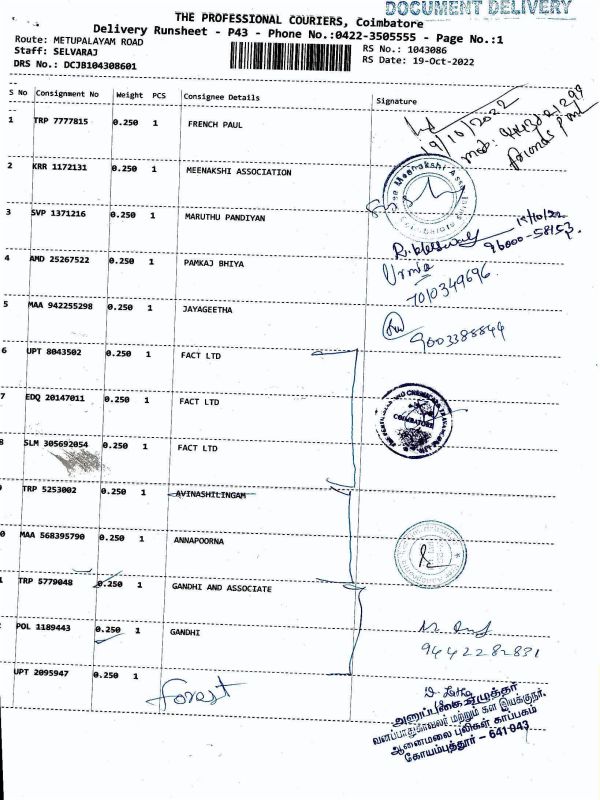 DOCUMENT DELIVERY
THE PROFESSIONAL COURIERS, Coimbatore
Delivery Runsheet - P43 - Phone No.:0422-3505555 - Page No.:1
Route: METUPALAYAM ROAD
Staff: SELVARAJ
DRS No.: DCJB104308601
RS No.: 1043086
RS Date: 19-Oct-2022
S No Consignment No Weight PCS Consignee Details Signature
1 TRP 7777815 0.250 1 FRENCH PAUL
19/10/2022
2 KRR 1172131 0.250 1 MEENAKSHI ASSOCIATION
3 SVP 1371216 0.250 1 MARUTHU PANDIYAN
19/10/22
96000-58153
4 AMD 25267522 0.250 1 PAMKAJ BHIYA
Urmila
7010349696
5 MAA 942255298 0.250 1 JAYAGEETHA
9003388844
6 UPT 8043502 0.250 1 FACT LTD
7 EDQ 20147011 0.250 1 FACT LTD
COIMBATORE
8 SLM 305692054 0.250 1 FACT LTD
TRP 5253002 0.250 1 AVINASHILINGAM
0 MAA 568395790 0.250 1 ANNAPOORNA
1 TRP 5779048 0.250 1 GANDHI AND ASSOCIATE
POL 1189443 0.250 1 GANDHI
9442282831
UPT 2095947 0.250 1
Forest
அனுப்புகை எழுத்தர்
வனப்பாதுகாவலர் மற்றும் கள இயக்குநர்,
ஆனைமலை புலிகள் காப்பகம்
கோயம்புத்தூர் – 641 043